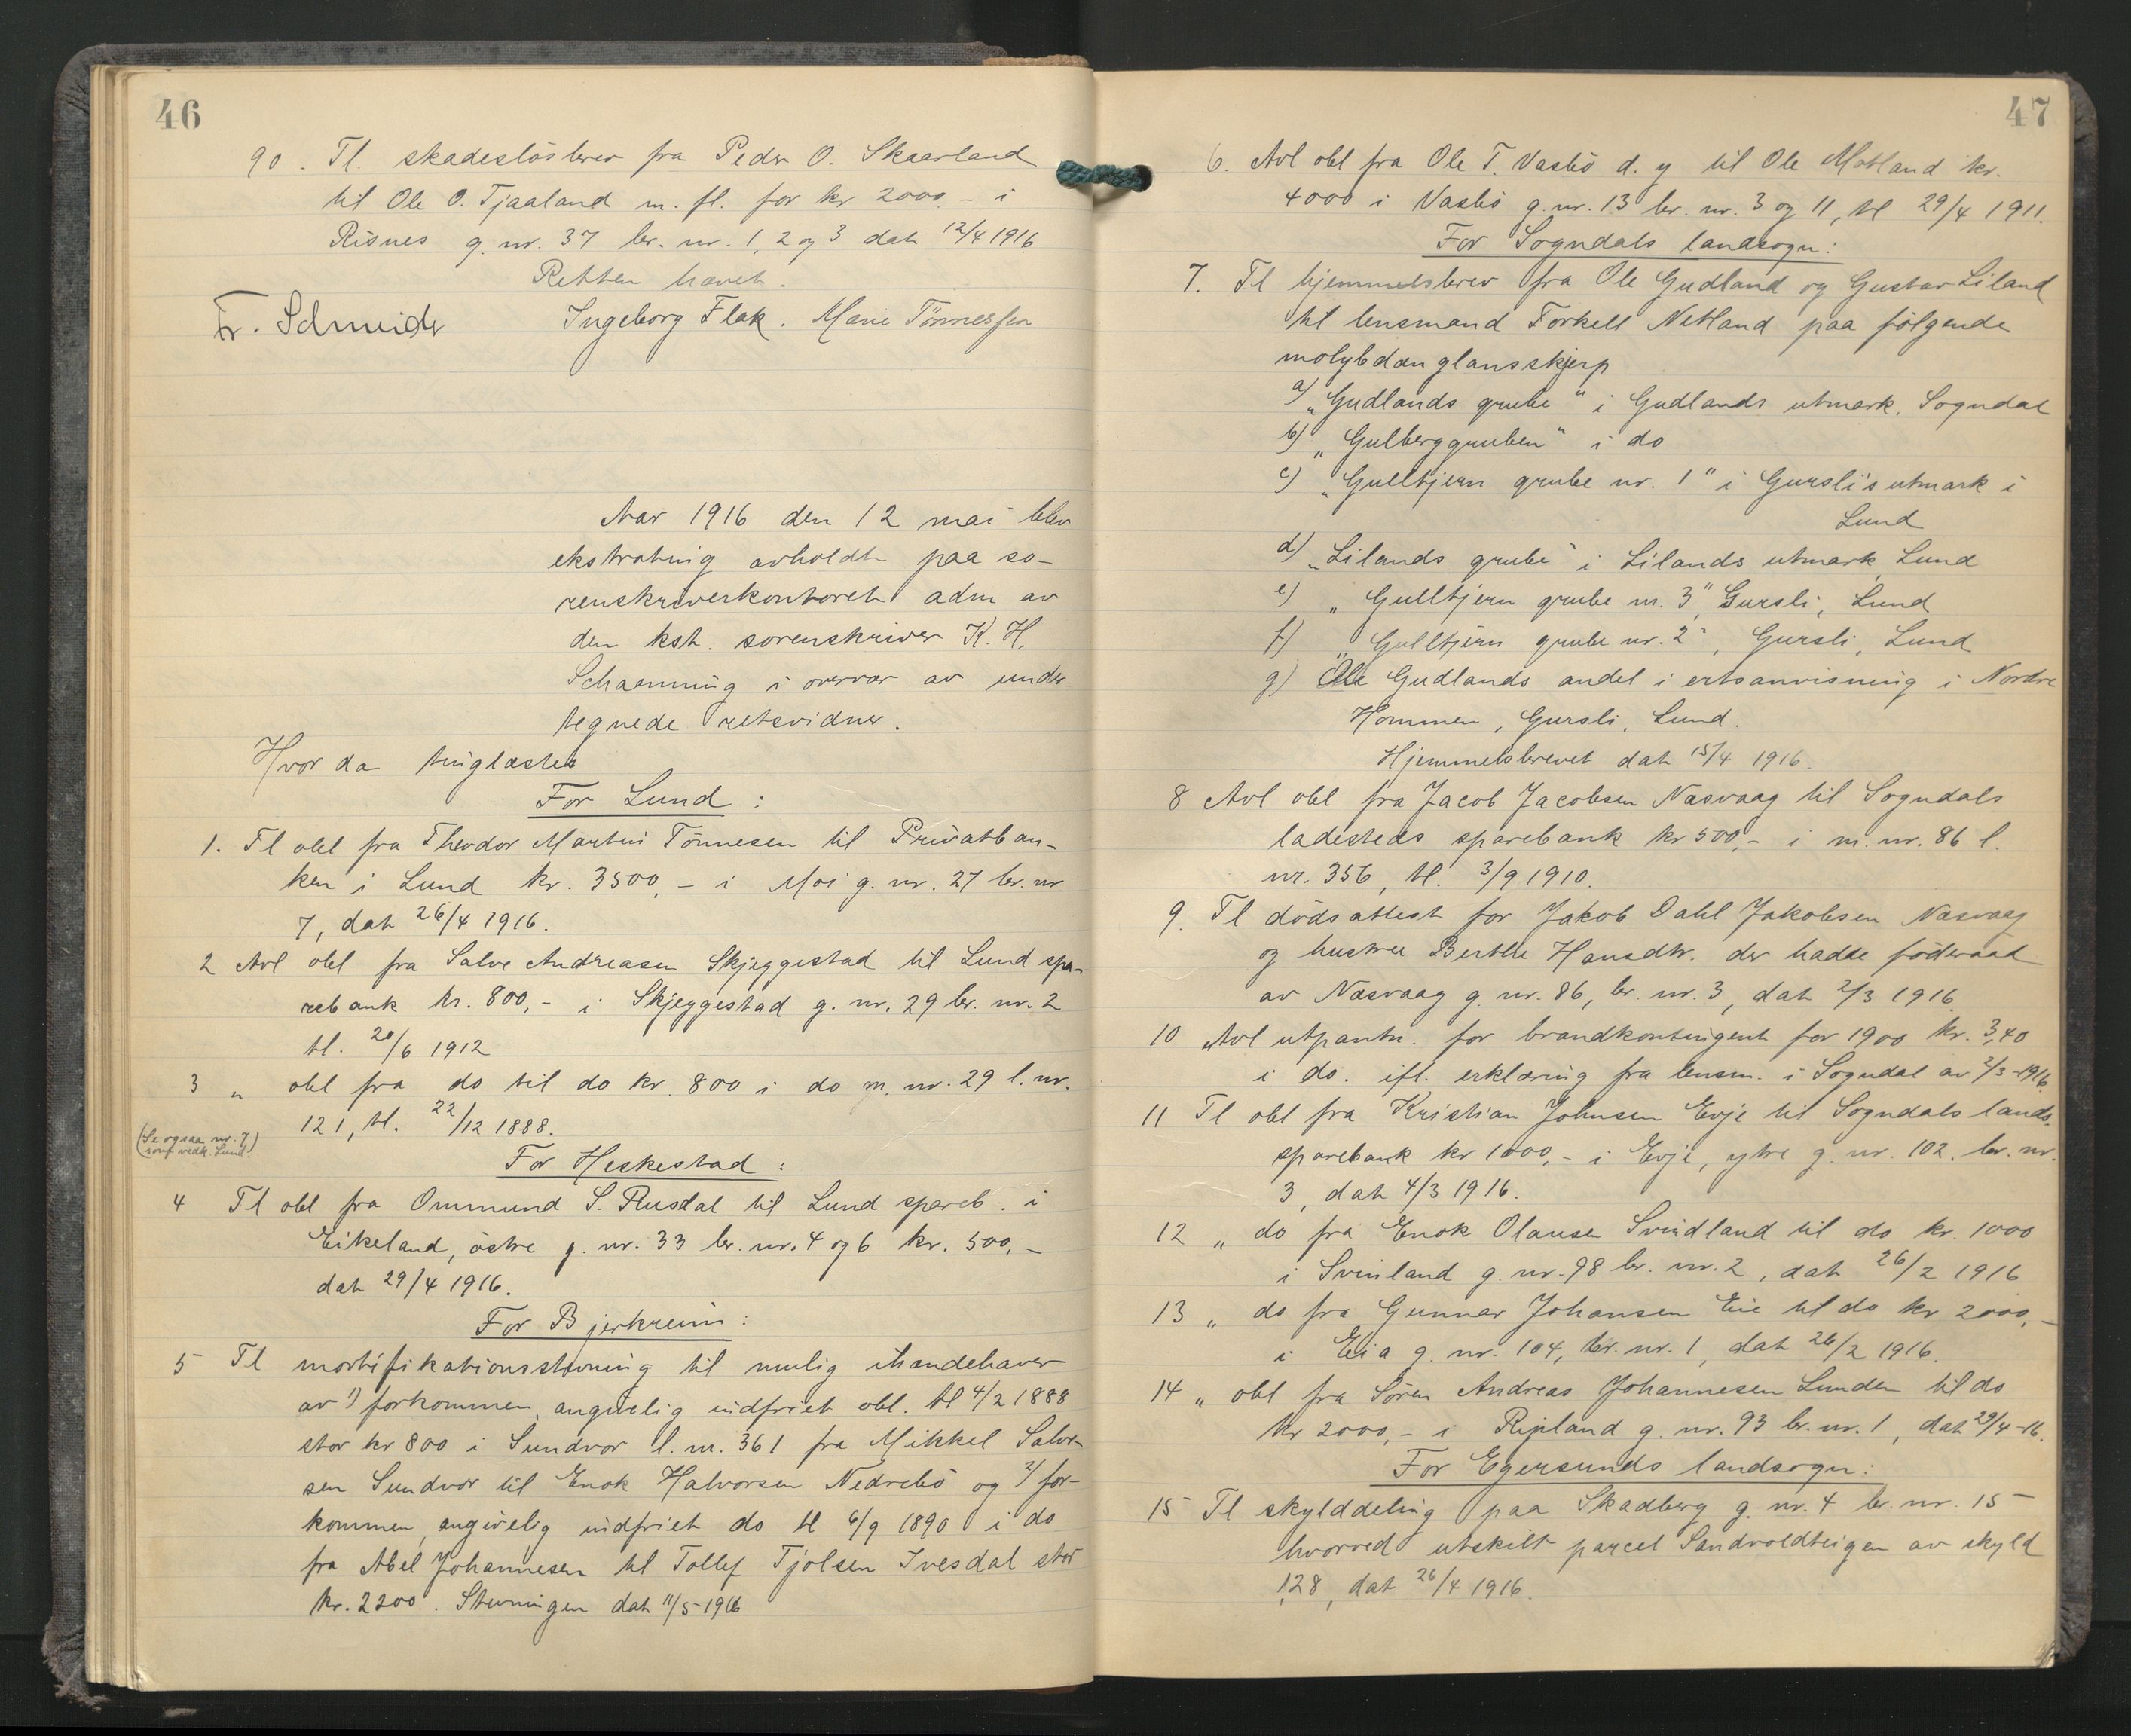 46
90. Tl. skadeslösbrev fra Peder O. Skaarland
til Ole O. Tjaaland m. fl. for kr 2000.- i
Risnes g. nr. 37 br. nr. 1, 2 og 3 dat 12/4 1916
Retten hævet.
Fr. Schneider Ingeborg Flak. Marie Tönnessen
Aar 1916 den 12 mai blev
ekstrating avholdt paa so-
renskriverkontoret adm av
den kst. sorenskriver K. H.
Schaanning i overvær av under
tegnede retsvidner.
Hvor da tinglæstes
For Lund:
1. Tl obl fra Theodor Martin Tönnesen til Privatban-
ken i Lund kr. 3500,- i Moi g. nr. 27 br. nr
7, dat 26/4 1916.
2 Avl obl fra Salve Andreasen Skjeggestad til Lund spa-
rebank kr. 800,- i Skjeggestad g. nr. 29 br. nr. 2
tl. 20/6 1912
3 „ obl fra do til do kr. 800 i do m. nr. 29 l. nr.
121, tl. 22/12 1888.
(Se ogsaa nr. 7)
som vedk. Lund.
For Heskestad:
4 Tl obl fra Ommund S. Rusdal til Lund spareb. i
Eikeland, östre g. nr. 33 br. nr. 4 og 6 kr. 500,-
dat 29/4 1916.
For Bjerkreim:
5 Tl mortifikationsstevning til mulig ihændehaver
av 1) forkommen, angivelig indfriet obl. tl 4/2 1888
stor kr 800 i Sundvor l. nr. 361 fra Mikkel Salve-
sen Sundvor til Enok Halvorsen Nedrebö og 2) for-
kommen, angivelig indfriet do tl 6/9 1890 i do
fra Abel Johannesen til Tollef Tjölsen Ivesdal stor
kr. 2200. Stevningen dat 11/5-1916
47
6. Avl obl fra Ole T. Vasbö d. y til Ole Motland kr.
4000 i Vasbö g. nr. 13 br. nr. 3 og 11, tl 29/4 1911.
For Sogndals landsogn:
7. Tl hjemmelsbrev fra Ole Gudland og Gustav Liland
til lensmand Torkell Netland paa fölgende
molybdænglansskjerp
a) „Gudlands grube“ i Gudlands utmark, Sogndal
b) „Gulberggruben“ i do
c) „Gulltjern grube nr. 1“ i Gursli's utmark i
Lund
d) „Lilands grube“ i Lilands utmark, Lund
e) „Gulltjern grube nr. 3“, Gursli, Lund
f) „Gulltjern grube nr. 2“, Gursli, Lund
g) Ole Gudlands andel i ertsanvisning i Nordre
Hommen, Gursli, Lund.
Hjemmelsbrevet dat 15/4 1916.
8 Avl obl fra Jacob Jacobsen Næsvaag til Sogndals
ladesteds sparebank kr 500,- i m. nr. 86 l.
nr. 356, tl. 3/9 1910.
9. Tl dödsattest for Jakob Dahl Jakobsen Næsvaag
og hustru Berthe Hansdtr. der hadde föderaad
av Næsvaag g. nr. 86, br. nr. 3, dat 2/3 1916
10 Avl utpantn. for brandkontingent for 1900 kr. 3,40
i do. ifl. erklæring fra lensm. i Sogndal av 2/3-1916.
11 Tl obl fra Kristian Johnsen Evje til Sogndals lands.
sparebank kr 1000,- i Evje, ytre g. nr. 102. br. nr.
3, dat 4/3 1916.
12 „ do fra Enok Olausen Svindland til do kr. 1000
i Svinland g. nr. 98 br. nr. 2, dat 26/2 1916
13 „ do fra Gunnar Johansen Eie til do kr 2000,-
i Eia g. nr. 104, br. nr. 1, dat 26/2 1916.
14 „ obl fra Sören Andreas Johannesen Lunden til do
kr 2000,- i Repland g. nr. 93 br. nr. 1, dat 29/4-16.
For Egersunds landsogn:
15 Tl skylddeling paa Skadberg g. nr. 4 br. nr. 15
hvorved utskilt parcel Sandvoldteigen av skyld
,128, dat 26/4 1916.